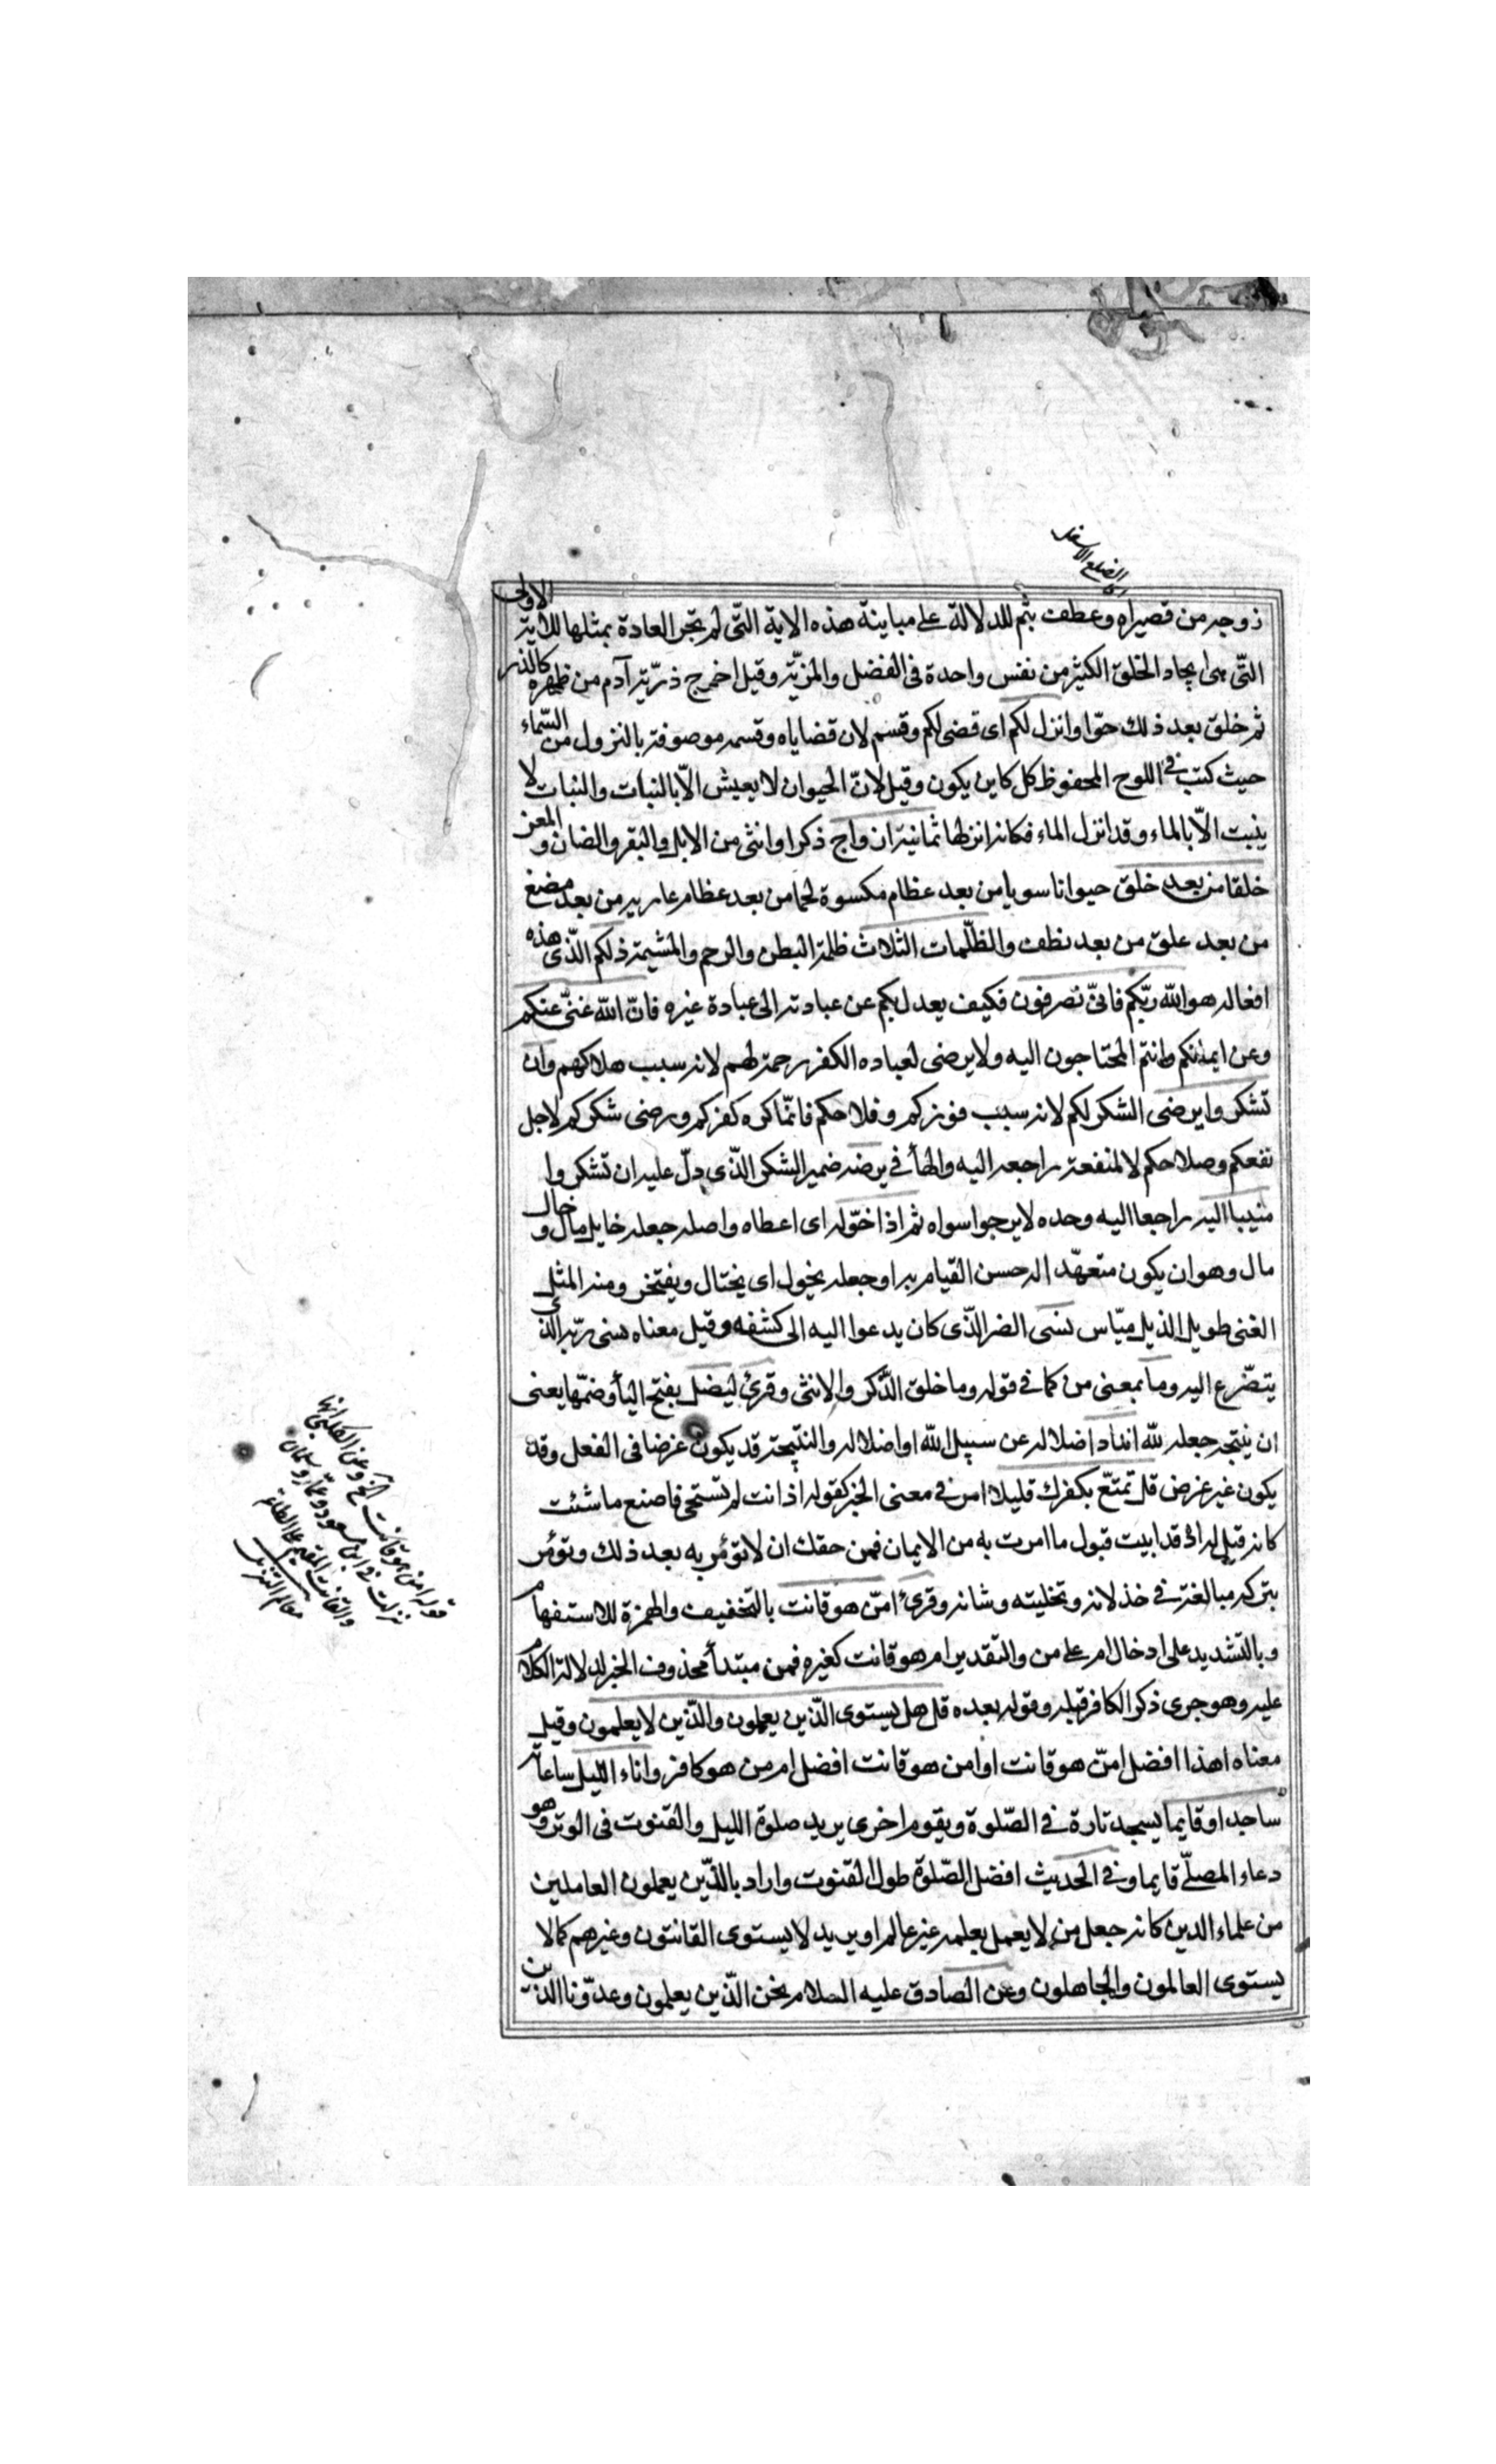 اى الضلع الاسفل
زوجه من قصيراه وعطف بثم للدلالة على مباينة هذه الاية التّى لم تجر العادة بمثلها للاية الاولى
التّى هى ايجاد الخلق الكثير من نفس واحدة فى الفضل والمزيّة وقيل اخرج ذرّية آدم من ظهره كالذر
ثم خلق بعد ذلك حوّا وانزل لكم اى قضى لكم وقسم لان قضاياه وقسمه موصوفة بالنزول من السّماء
حيث كتب فى اللوح المحفوظ كل كاين يكون وقيل لانّ الحيوان لا يعيش الّا بالنبات والنبات لا
ينبت الّا بالماء وقد انزل الماء فكانه انزلها ثمانية ازواج ذكرا وانثى من الابل والبقر والضان والمعز
خلقا من بعد خلق حيوانا سويا من بعد عظام مكسوة لحما من بعد عظام عارية من بعد مضغ
من بعد علق من بعد نطف والظّلمات الثلاث ظلمة البطن والرحم والمشيمة ذلكم الّذى هذه
افعاله هو الله ربّكم فانىّ تصرفون فكيف يعدل بكم عن عبادته الى عبادة غيره فانّ الله غنىّ عنكم
وعن ايمانكم وانتم المحتاجون اليه ولا يرضى لعباده الكفر رحمة لهم لانه سبب هلاكهم وان
تشكروا يرضى الشكر لكم لانه سبب فوزكم وفلاحكم فانّما كره كفركم ورضى شكركم لاجل
نفعكم وصلاحكم لا لمنفعة راجعة اليه والهأ فى يرضه ضمير الشكر الّذى دلّ عليه ان تشكروا
منيبا اليه راجعا اليه وحده لا يرجوا سواه ثم اذا خوّله اى اعطاه واصله جعله خايل مال وخال
مال وهو ان يكون متعهّدا له حسن القيام به او جعله يخول اى يختال ويفتخر ومنه المثل
الغنى طويل الذيل ميّاس نسى الضر الّذى كان يدعوا اليه الى كشفه وقيل معناه نسى ربّه الذى
يتضّرع اليه وما بمعنى من كما فى قوله وما خلق الذّكر والانثى وقرئ ليضل بفتح اليأ وضمّها يعنى
ان نتيجة جعله لله اندادا ضلاله عن سبيل الله او اضلاله والنتيجة قد يكون غرضا فى الفعل وقد
يكون غير غرض قل تمتّع بكفرك قليلا امر فى معنى الخبر كقوله اذا انت لم تستحى فاصنع ما شئت
كانه قيل له اذ قد ابيت قبول ما امرت به من الايمان فمن حقك ان لا تؤمر به بعد ذلك وتؤمر
بتركه مبالغة فى خذلانه وتخليته وشانه وقرئ امّن هو قانت بالتخفيف والهمزة للاستفهام
وبالتشديد على ادخال ام على من والتقدير ام هو قانت كغيره فمن مبتدأ محذوف الخبر لدلالة الكلام
عليه وهو جرى ذكر الكافر قبله وقوله بعده قل هل يستوى الّذين يعملون والّذين لا يعلمون وقيل
معناه اهذا افضل امّن هو قانت او امن هو قانت افضل ام من هو كافر واناء الليل ساعاته
ساجدا وقايما يسجد تارة فى الصّلوة ويقوم اخرى يريد صلوة الليل والقنوت فى الوتر وهو
دعاء المصلّى قايما وفى الحديث افضل الصّلوة طول القنوت واراد بالذّين يعملون العاملين
من علماء الدين كانه جعل من لا يعمل بعلمه غير عالم او يريد لا يستوى القانتون وغيرهم كما لا
يستوى العالمون والجاهلون وعن الصادق عليه السلام نحن الّذين يعلمون وعدّونا الذين
قوله امن هو قانت الخ وعن الكلبى انها
نزلت فى ابن مسعود وعمار وسلمان
والقانت المقيم على الطاعة
معالم التنزيل